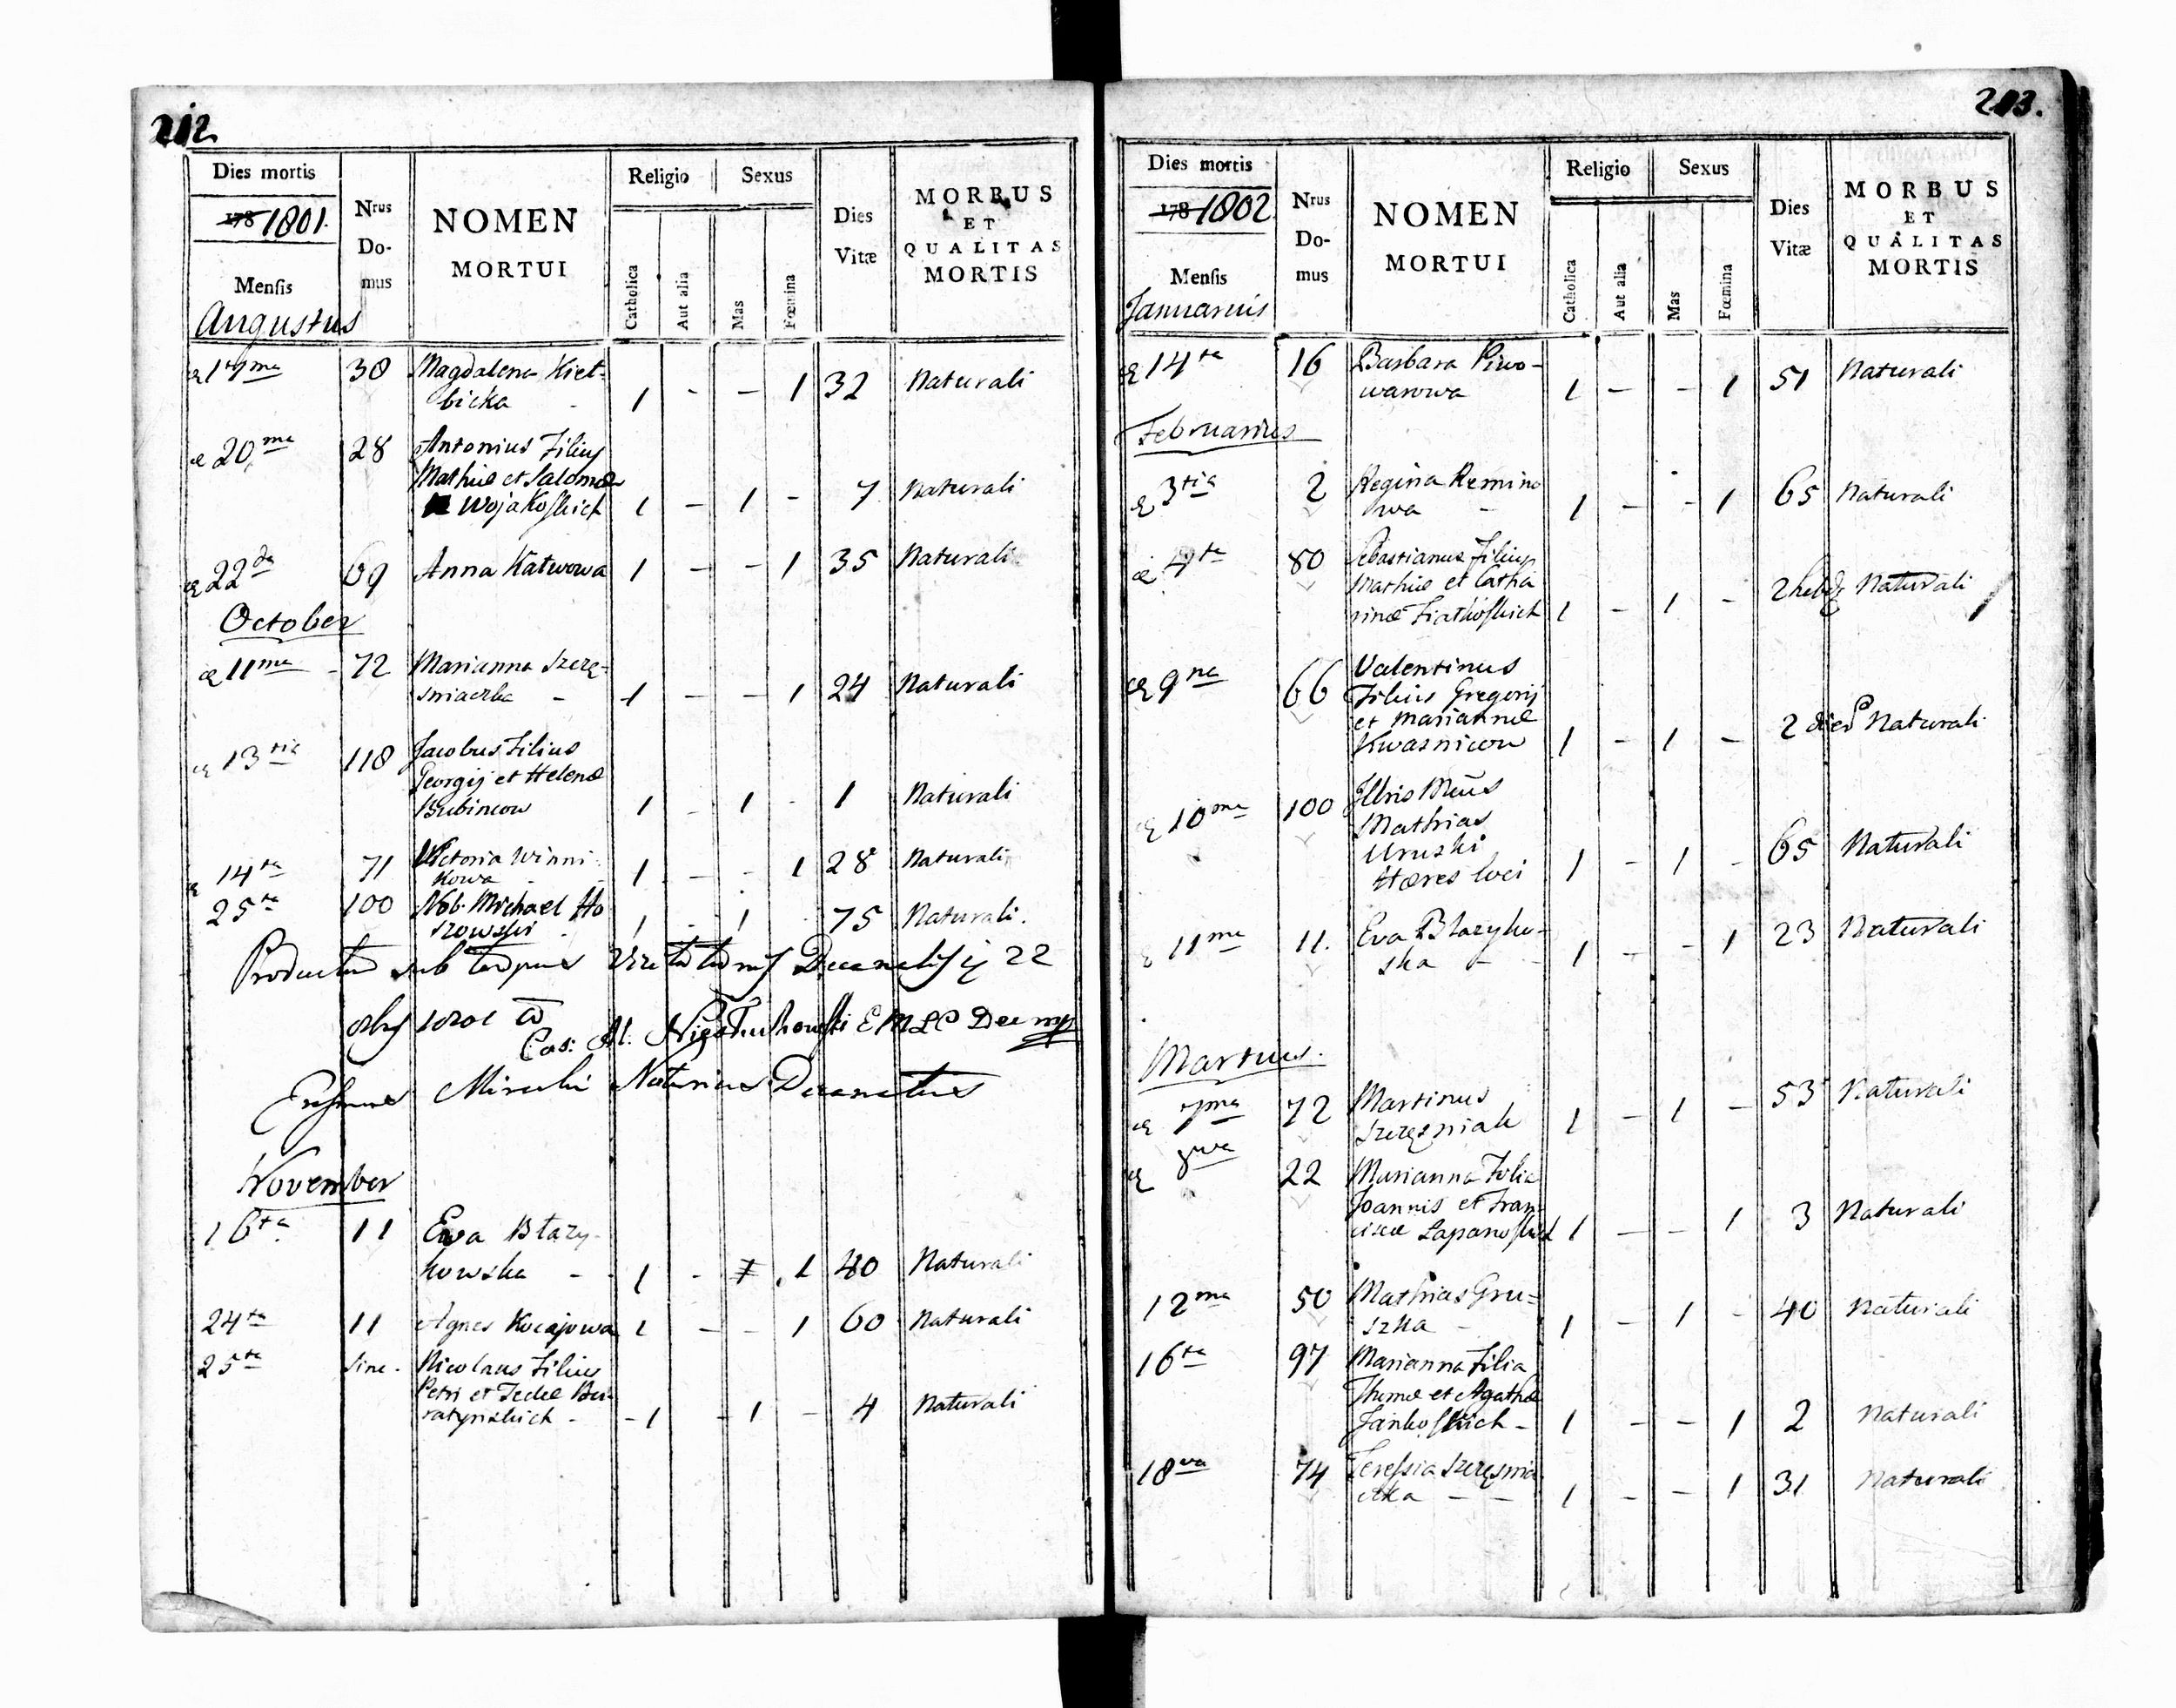 212
Dies mortis
178 1801.
Mensis
Augustus
Nrus
Do-
mus
NOMEN
MORTUI
Religio
Sexus
Catholica
Aut alia
Mas
Fœmina
Dies
Vitæ
MORBUS
ET
QUALITAS
MORTIS
30 Magdalena Kiel-
bicka - 1 - - 1 32 Naturali
20ma 28 Antonius Filius
Mathiæ et Salomeæ
Wojakoskich 1 - 1 - 7 Naturali
22da 69 Anna Katwowa 1 - - 1 35 Naturali
October
11ma - 72 Marianna Szczę-
sniaczka - 1 - - 1 24 Naturali
13tia 118 Jacobus Filius
Georgij et Helenæ
Bubincow 1 - 1 - 1 Naturali
14ta 71 Victoria Winni-
kowa - 1 - - 1 28 Naturali
25ta 100 Nob. Michael Ho
szowski 1 - 1 75 Naturali.
Productum sub tempus Decanalis 22
Notarius Decanatus
November
16ta 11 Ewa Błazy-
kowska - - 1 - 1 40 Naturali
24ta 11 Agnes Kocajowa 1 - - 1 60 Naturali
25ta Sine. Nicolaus Filius
Petri et Teclæ Bu-
ratynskich - 1 - 1 - 4 Naturali
213.
Dies mortis
178 1802
Mensis
Januarius
Nrus
Do-
mus
NOMEN
MORTUI
Religio
Sexus
Catholica
Aut alia
Mas
Fœmina
Dies
Vitæ
MORBUS
ET
QUALITAS
MORTIS
14ta 16 Barbara Piwo-
warowa 1 - - 1 51 Naturali
Februarius
3tia 2 Regina Remino
wa - 1 - - 1 65 Naturali
4ta 80 Sebastianus Filius
Mathiæ et Catha
rinæ Fiatkoskich 1 - 1 - 2 hebd Naturali
9na 66 Valentinus
Filius Gregorij
et Mariannæ
Kwasnicow 1 - 1 - 2 dier Naturali
10ma 100 Illris
Mathias
Uruski
Hæres loci 1 - 1 - 65 Naturali
11ma 11. Eva Blazyko-
ska - 1 - - 1 23 Naturali
Martius.
7ma 72 Martinus
Szczęsniak 1 - 1 - 53 Naturali
8va 22 Marianna Filia
Joannis et Fran-
ciscæ Lapanoskich 1 - - 1 3 Naturali
12ma 50 Mathias Gru-
szka - 1 - 1 - 40 Naturali
16ta 97 Marianna Filia
Thomæ et Agathæ
Jankoskich - 1 - - 1 2 Naturali
18va 74 Teressia Szczęsnia
cka - - 1 - - 1 31 Naturali